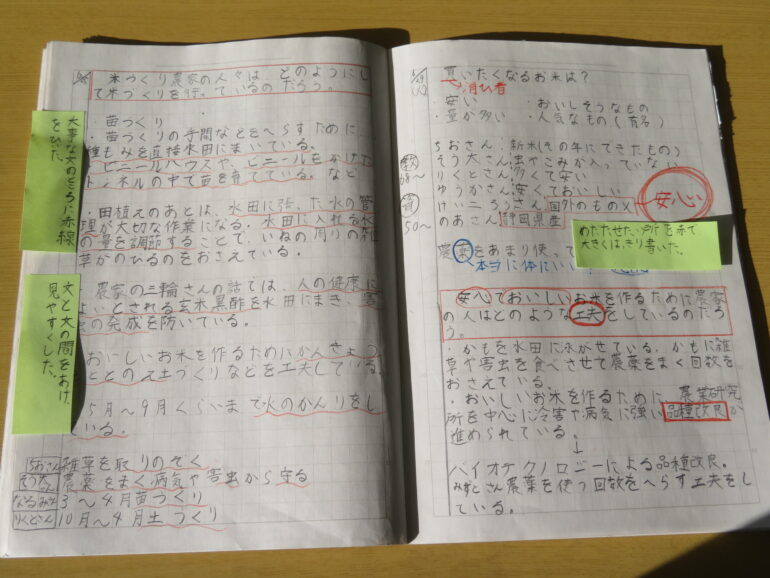 米づくり農家の人々は、どのようにし
て米づくりを行っているのだろう。
・苗づくり
・苗づくりの手間などをへらすために、
種もみを直接水田に蒔いている。
・ビニールハウスや、ビニールをかけた
トンネルの中で苗を育てている。など
・田植えのあとは、水田に張った水の管
理が大切な作業になる。水田に入れる水
の量を調節することで、いねの周りの雑
草がのびるのをおさえている。
農家の三輪さんの話では、人の健康に
よいとされる玄米黒酢を水田にまき、害
虫の発成を防いでいる。
おいしいお米を作るためにかんきょう
をととのえ土づくりなどを工夫している。
5月〜9月くらいまで水のかんりをし
ている。
ちおさん 雑草を取りのぞく
そう大さん 農薬をまく病気や害虫から守る
なるみさん 3〜4月苗づくり
りくとさん 10月〜4月土づくり
大事な文のところに赤線
をひいた。
文と文の間をあけ、
見やすくした。
買いたくなるお米は?
消ひ者
・安い
・おいしそうなもの
・量が多い
・人気なもの(有名)
教
68〜
資
50〜
ちおさん:新米(その年にできたもの)
そう大さん:虫やごみが入っていない
りくとさん:多くて安い
ゆうかさん:安くておいしい
けい二ろうさん:国外のもの×
のあさん:静岡県産
安心
めだたせたい所を赤で
大きくはっきり書いた。
農薬をあまり使って
本当に体にいい
安心でおいしいお米を作るために農家
の人はどのような工夫をしているのだろ
う。
・かもを水田に泳がせている。かもに雑
草や害虫を食べさせて農薬をまく回数を
おさえている。
・おいしいお米を作るために、農業研究
所を中心に冷害や病気に強い品種改良が
進められている。
↓
バイオテクノロジーによる品種改良。
みずとさん農薬を使う回数をへらす工夫をし
ている。